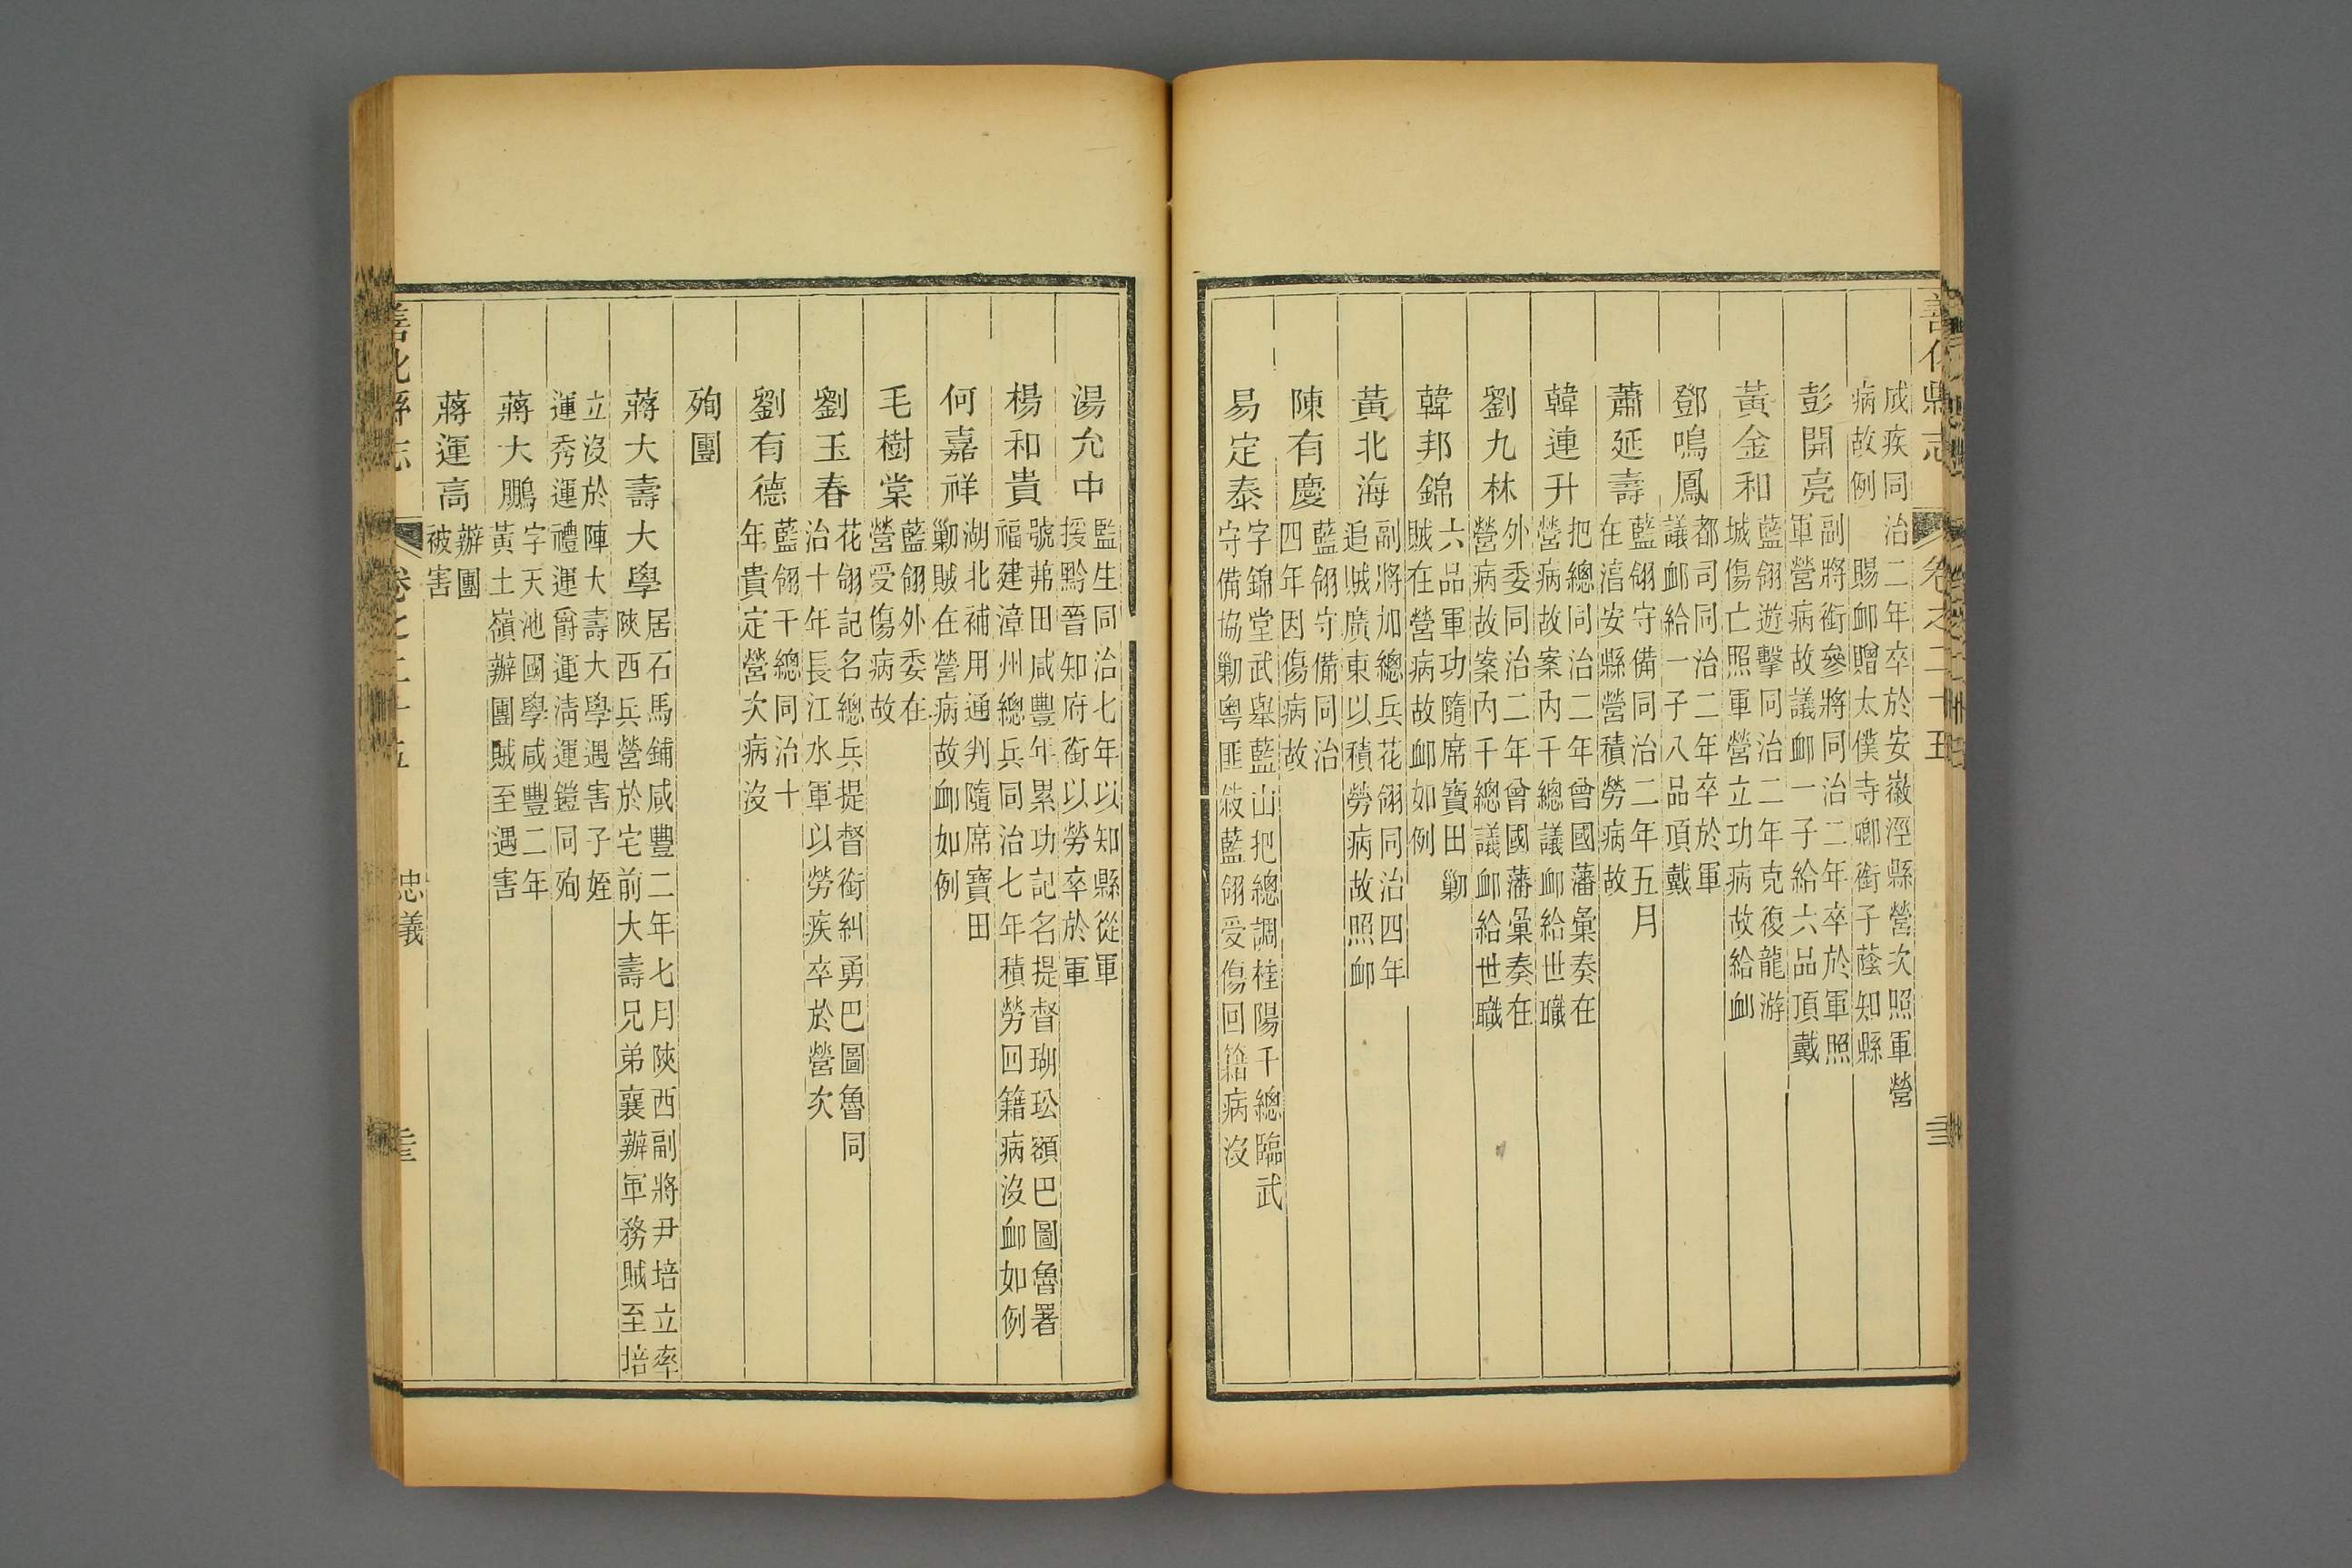 善化縣志
卷之二十五
成疾同治二年卒於安徽涇縣營次照軍營
病故例賜卹贈太僕寺卿銜子蔭知縣
彭開亮
副將銜參將同治二年卒於軍照
軍營病故議卹一子給六品頂戴
黃金和
藍翎遊擊同治二年克復龍游
城傷亡照軍營立功病故給卹
鄧鳴鳳
都司同治二年卒於軍
議卹給一子八品頂戴
蕭延壽
藍翎守備同治二年五月
在涪安縣營積勞病故
韓連升
把總同治二年曾國藩彙奏在
營病故案內千總議卹給世職
劉九林
外委同治二年曾國藩彙奏在
營病故案內千總議卹給世職
韓邦錦
六品軍功隨席寶田勦
賊在營病故卹如例
黃北海
副將加總兵花翎同治四年
追賊廣東以積勞病故照卹
陳有慶
藍翎守備同治
四年因傷病故
易定泰
字錦堂武舉藍山把總調桂陽千總臨武
守備協勦粵匪敘藍翎受傷回籍病沒
湯允中
監生同治七年以知縣從軍
援黔晉知府銜以勞卒於軍
楊和貴
號茀田咸豐年累功記名提督瑚玜額巴圖魯署
福建漳州總兵同治七年積勞回籍病沒卹如例
何嘉祥
湖北補用通判隨席寶田
勦賊在營病故卹如例
毛樹棠
藍翎外委在
營受傷病故
劉玉春
花翎記名總兵提督銜糾勇巴圖魯同
治十年長江水軍以勞疾卒於營次
劉有德
藍翎千總同治十
年貴定營次病沒
殉團
蔣大壽大學
居石馬鋪咸豐二年七月陝西副將尹培立率
陝西兵營於宅前大壽兄弟襄辦軍務賊至培
立沒於陣大壽大學遇害子姪
運秀運禮運爵運清運鎧同殉
蔣大鵬
字天池國學咸豐二年
黃土嶺辦團賊至遇害
蔣運高
辦團
被害
善化縣志
卷之二十五
忠義